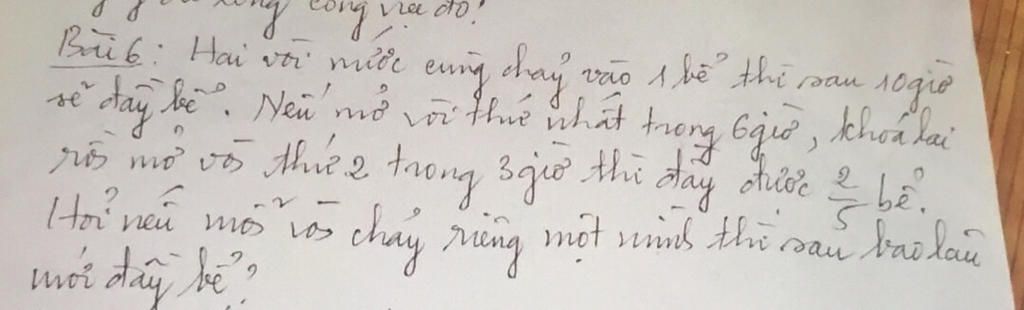 công việc đó!
Bài 6: Hai vòi nước cùng chảy vào 1 bể thì sau 10 giờ
sẽ đầy bể. Nếu mở vòi thứ nhất trong 6 giờ, khoá lại
rồi mở vòi thứ 2 trong 3 giờ thì đầy được 2/5 bể.
Hỏi nếu mỗi vòi chảy riêng một mình thì sau bao lâu
mới đầy bể?